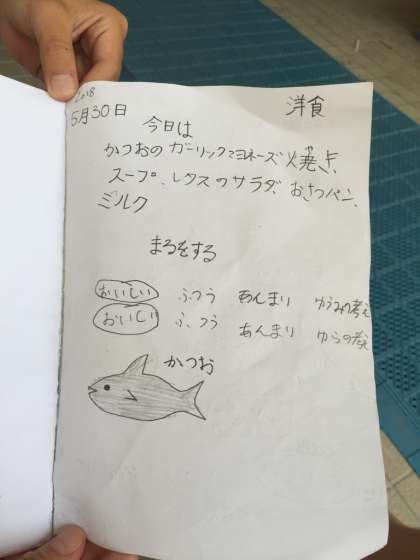 2018
5月30日
洋食
今日は
かつおのガーリックマヨネーズ焼き、
スープ、レタスのサラダ、おさつパン、
ミルク
まるをする
おいしい ふつう あんまり ゆうみの考え
おいしい ふつう あんまり ゆらの考え
かつお